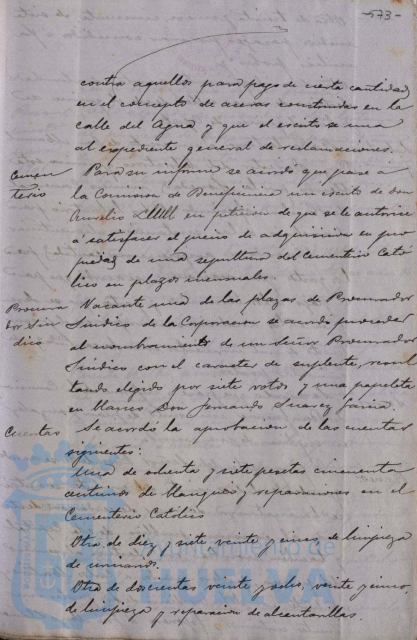 -573-
contra aquellos para pago de cierta cantidad
en el concepto de aceras construidas en la
calle del Agua y que el escrito se una
al expediente general de reclamaciones.
Cemen
terio
Para su informe se acordó que pase a
la Comision de Beneficencia un escrito de Don
Aurelio en peticion de que se le autorice
á satisfacer el precio de adquisicion en pro
piedad de una sepultura del Cementerio Cató
lico en plazos mensuales.
Procura
dor Sin
dico
Vacante una de las plazas de Procurador
Sindico de la Corporacion se acordó proceder
al nombramiento de un Señor Procurador
Sindico con el caracter de suplente, resul
tando elegido por siete votos y una papeleta
en blanco Don Fernando Suarez
Cuentas
Se acordó la aprobacion de las cuentas
siguientes:
Una de ochenta y siete pesetas cincuenta
centimos de blanqueo y reparaciones en el
Cementerio Catolico
Otra de diez y siete veinte y cinco, de limpieza
de
Otra de doscientas veinte y ocho, veinte y cinco
de limpieza y reparacion de alcantarillas.
Ayuntamiento de
HUELVA